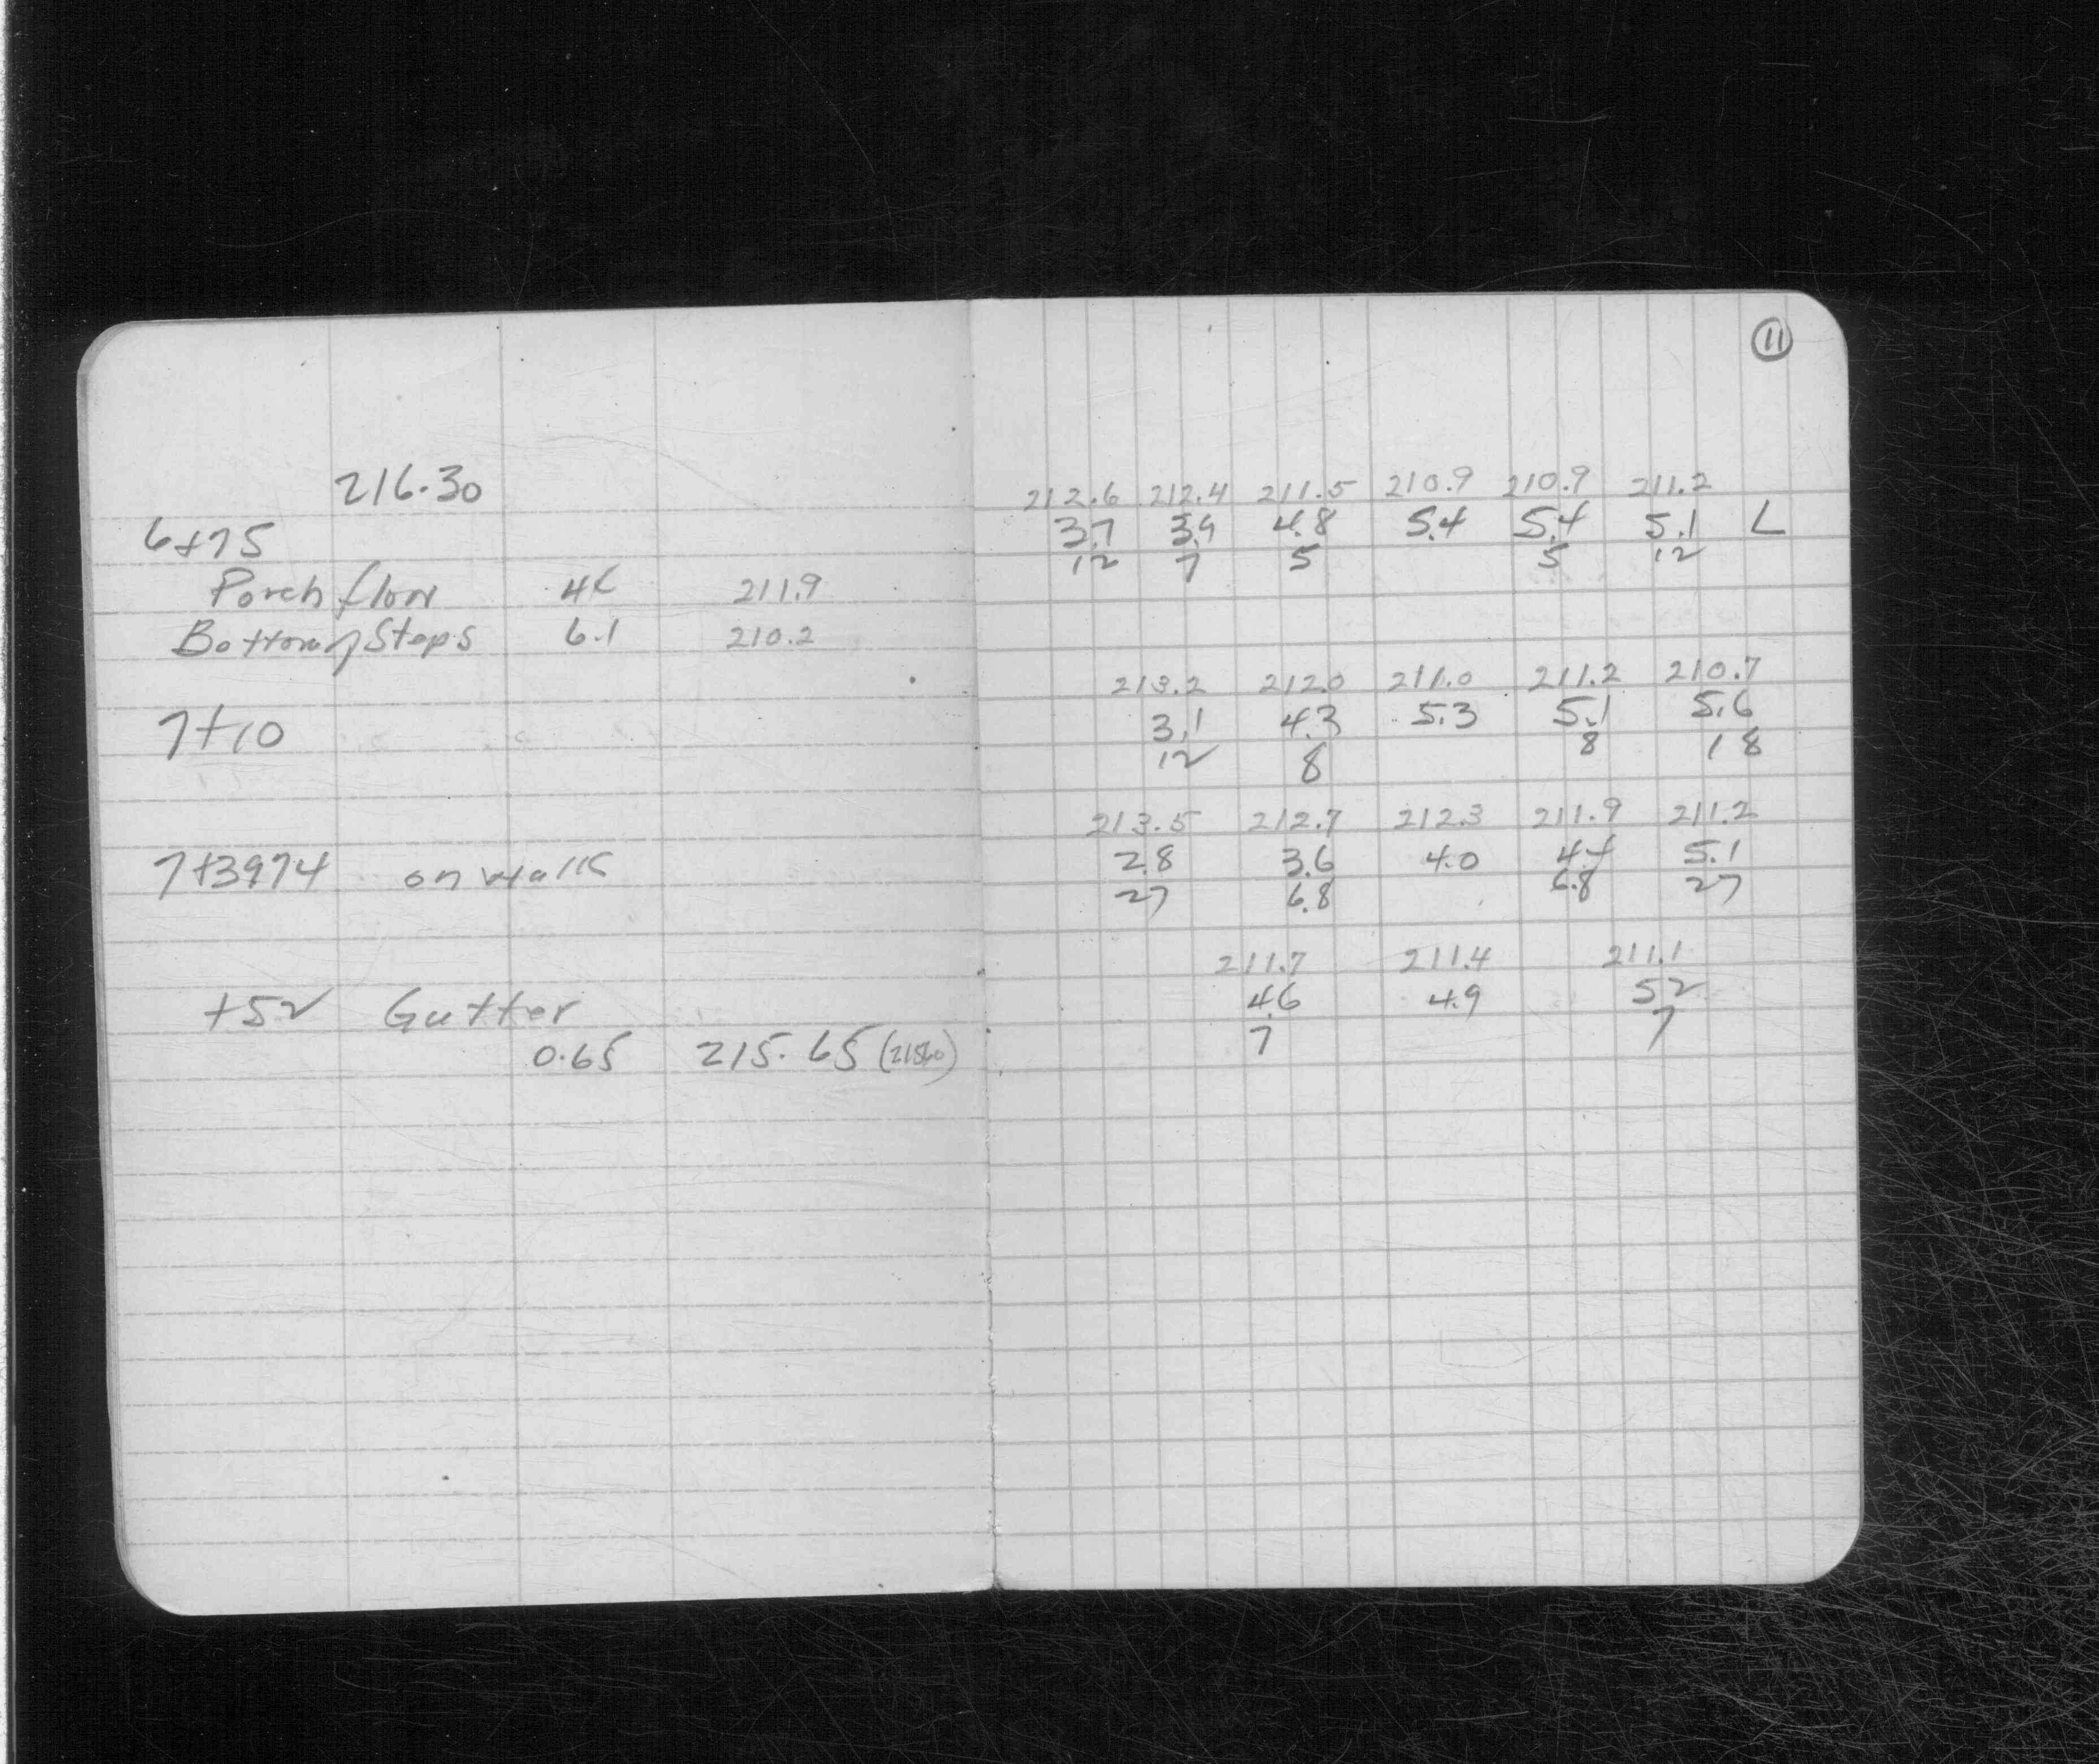 216.30
6+75
Porch floor 4.4 211.9
Bottom of Steps 6.1 210.2
7+10
7+3974 on walk
+52 Gutter
0.65 215.65 (21560)
11
212.6 212.4 211.5 210.9 210.9 211.2
3.7 3.9 4.8 5.4 5.4 5.1 L
12 7 5 5 12
213.2 212.0 211.0 211.2 210.7
3.1 4.3 5.3 5.1 5.6
12 8 8 18
213.5 212.7 212.3 211.9 211.2
2.8 3.6 4.0 4.4 5.1
27 6.8 6.8 27
211.7 211.4 211.1
4.6 4.9 52
7 7